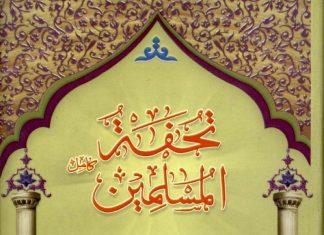 تحفۃ
المسلمین کامل